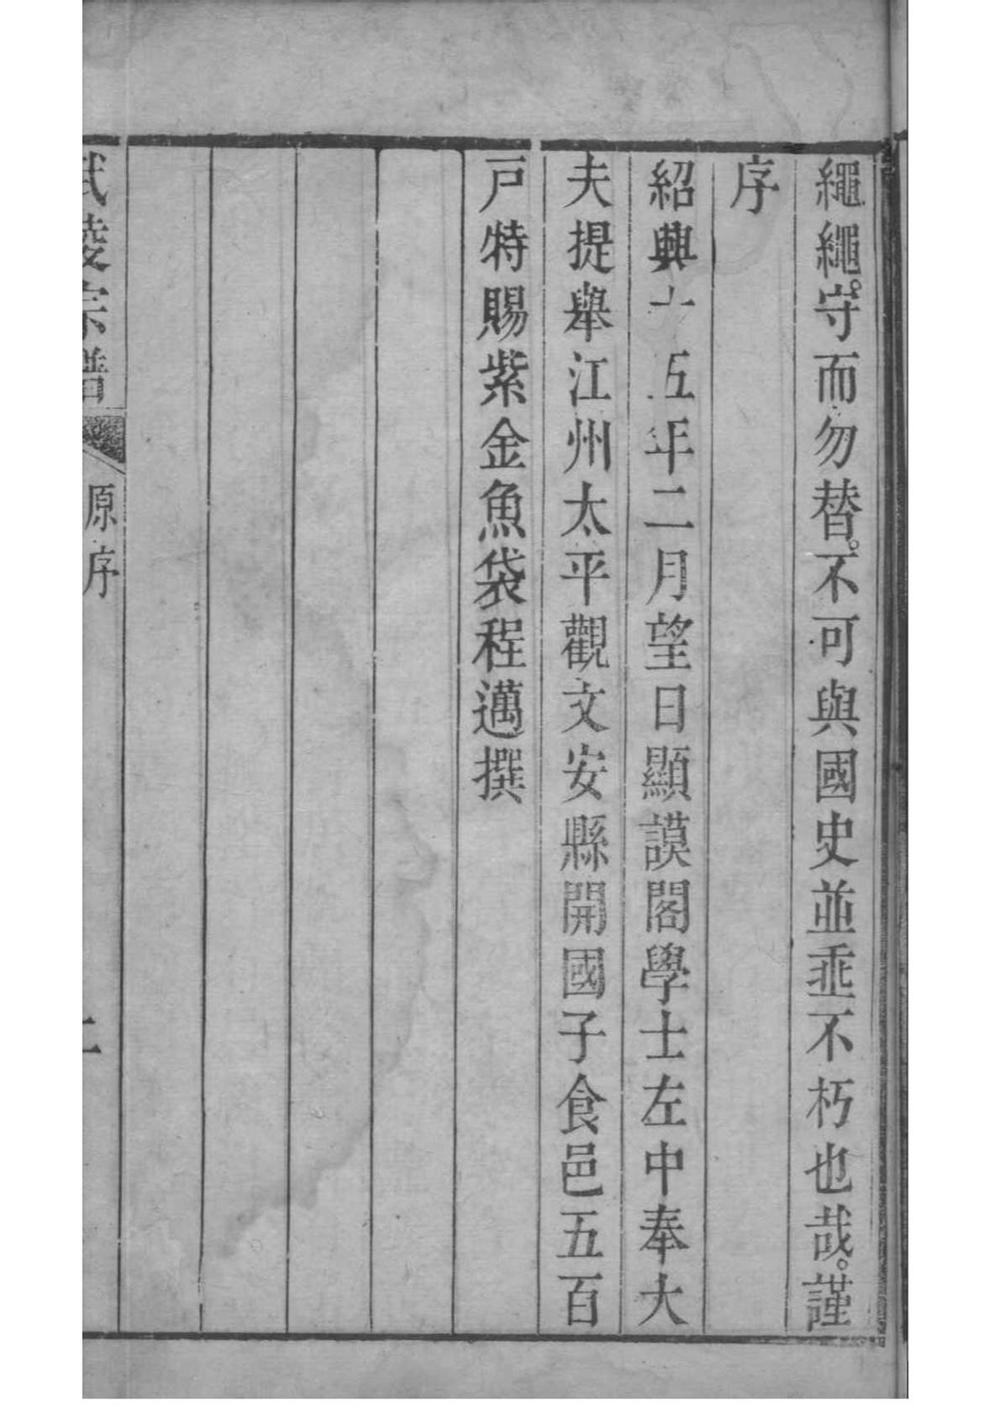 繩繩。守而勿替。不可與國史並垂不朽也哉。謹
序
紹興十五年二月望日顯謨閣學士左中奉大
夫提舉江州太平觀文安縣開國子食邑五百
戸特賜紫金魚袋程邁撰
武陵宗譜
原序
二